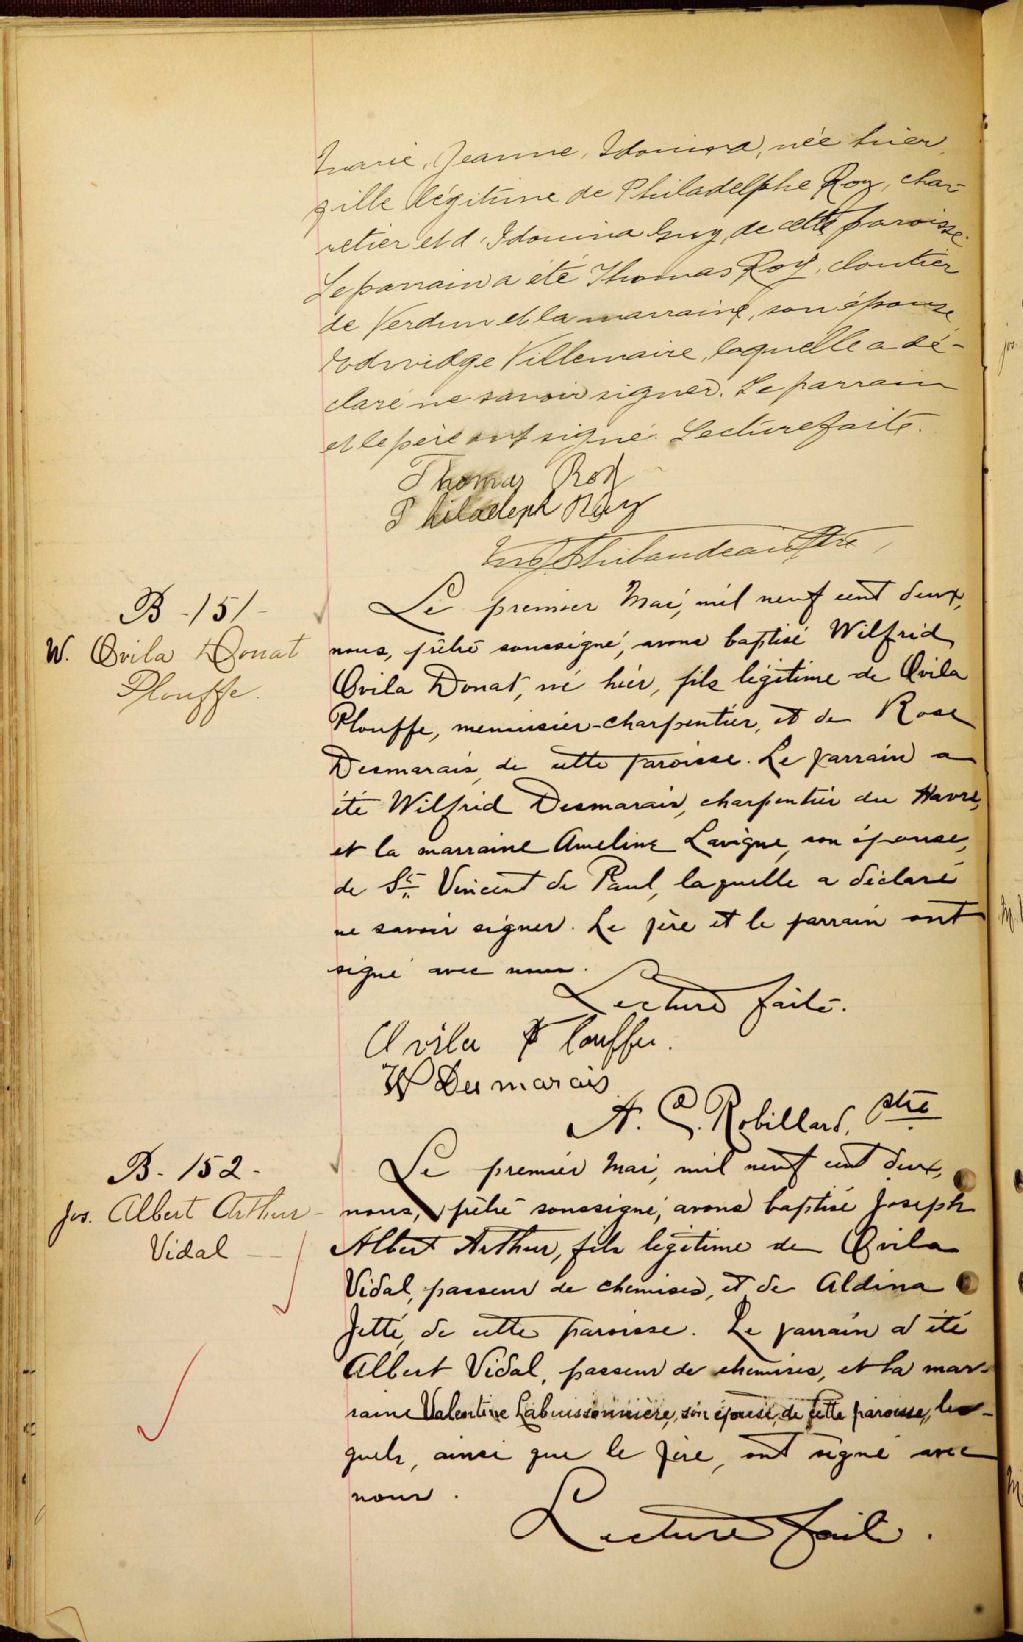 Marie, Jeanne, Idouina, née hier,
fille légitime de Philadelphe Roy, char-
retier et d'Idouina Guy, de cette paroisse.
Le parrain a été Thomas Roy, cloutier
de Verdun et la marraine, son épouse
Edwidge Villemaire, laquelle a dé-
claré ne savoir signer. Le parrain
et le père ont signé. Lecture faite.
Thomas Roy
Philadelph Roy
Thibaudeau Ptre
B - 151 -
W. Ovila Donat
Plouffe.
Le premier Mai, mil neuf cent deux,
nous, prêtre soussigné, avons baptisé Wilfrid
Ovila Donat, né hier, fils légitime de Ovila
Plouffe, menuisier-charpentier, et de Rose
Desmarais, de cette paroisse. Le parrain a
été Wilfrid Desmarais, charpentier du Havre,
et la marraine Ameline Lavigne, son épouse,
de St Vincent de Paul, laquelle a déclaré
ne savoir signer. Le père et le parrain ont
signé avec nous.
Lecture faite.
Ovila Plouffe.
W Desmarais
A. C. Robillard, ptre
B - 152 -
Jos. Albert Arthur
Vidal
Le premier Mai, mil neuf cent deux,
nous, prêtre soussigné, avons baptisé Joseph
Albert Arthur, fils légitime de Ovila
Vidal, passeur de chemises, et de Aldina
Jetté, de cette paroisse. Le parrain a été
Albert Vidal, passeur de chemises, et la mar-
raine Valentine Labuissonnière, son épouse, de cette paroisse, les-
quels, ainsi que le père, ont signé avec
nous.
Lecture faite.